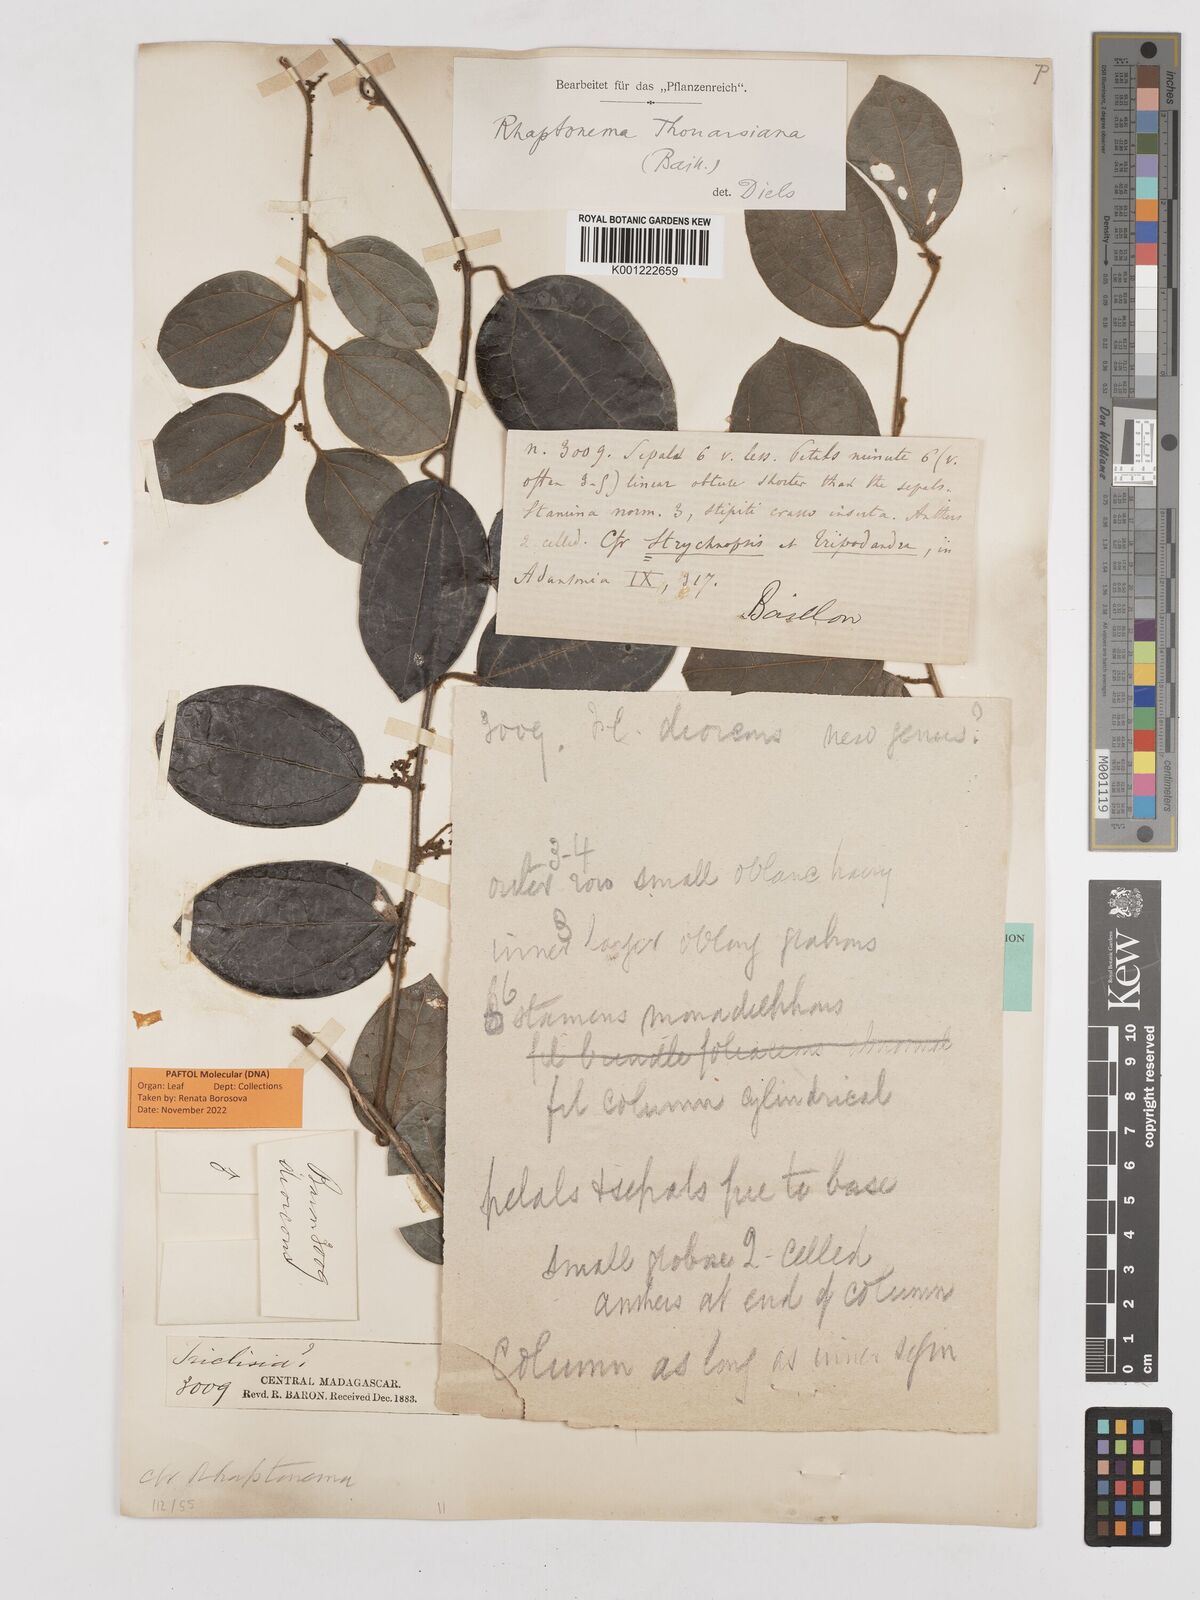 P
Bearbeitet für das „Pflanzenreich".
Rhaptonema Thouarsiana
(Baill.)
det. Diels
ROYAL BOTANIC GARDENS KEW
K001222659
n. 3009. Sepala 6 v. less. Petals minute 6 (v.
often 3-5) linear obtuse shorter than the sepals.
Stamina norm. 3, stipiti crasso inserta. Anthers
2-celled. Cfr Strychnopsis et Tripodandra, in
Adansonia IX, 317.
Baillon
3009. Fl. dioecious new genus?
3-4
outer row small oblanc hairy
inner 3 larger oblong glabrous
6 stamens monadelphous
fil bundle foliaceous
fil column cylindrical
petals & sepals free to base
small globose 2-celled
anthers at end of column
Column as long as inner segm
ION
PAFTOL Molecular (DNA)
Organ: Leaf Dept: Collections
Taken by: Renata Borosova
Date: November 2022
♂
Baron 3009
dioecious
Triclisia?
3009
CENTRAL MADAGASCAR.
Revd. R. BARON. Received Dec. 1883.
cfr Rhaptonema
112/55
11
inches
centimetres
Don Williams
M001119
Royal Botanic Gardens
Kew
copyright reserved
0 1 2 3 4 5 6 7 8 9 10
cm